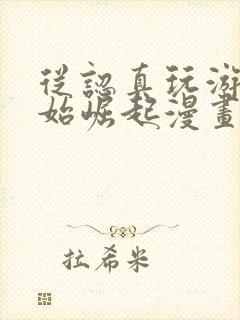 從認真玩游
始崛起漫畫
拉希米